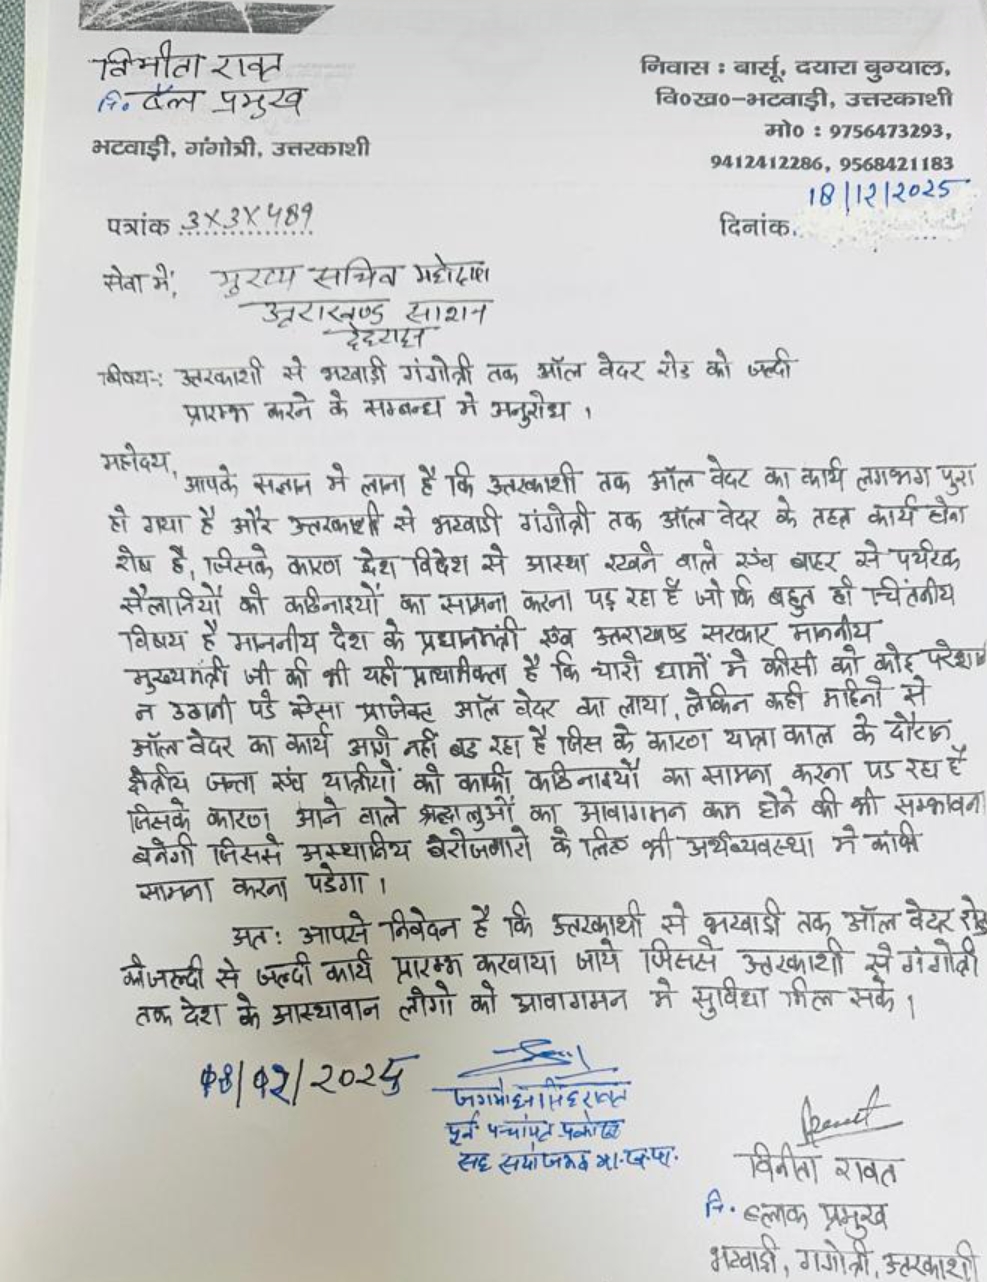 विनीता रावत
नि. ब्लॉक प्रमुख
भटवाड़ी, गंगोत्री, उत्तरकाशी
निवास : बार्सू, दयारा बुग्याल,
वि०ख०-भटवाड़ी, उत्तरकाशी
मो० : 9756473293,
9412412286, 9568421183
18/12/2025
पत्रांक 3X3X489
दिनांक.
सेवा में, मुख्य सचिव महोदय
उत्तराखण्ड साशन
देहरादून
विषय-: उत्तरकाशी से भटवाडी गंगोत्री तक ऑल वेदर रोड को जल्दी
प्रारम्भ करने के सम्बन्ध मे अनुरोध ।
महोदय,
आपके सज्ञान मे लाना है कि उत्तरकाशी तक ऑल वेदर का कार्य लगभग पुरा
हो गया है और उत्तरकाशी से भटवाडी गंगोत्री तक ऑल वेदर के तहत कार्य होना
शेष है, जिसके कारण देश विदेश से आस्था रखने वाले एंव बाहर से पर्यटक
सैलानियों को कठिनाइयों का सामना करना पड़ रहा है जो कि बहुत ही चिंतनीय
विषय है माननीय देश के प्रधानमंत्री एंव उत्तराखण्ड सरकार माननीय
मुख्यमंत्री जी की भी यही प्राथमिकता है कि चारो धामों मे कीसी को कोइ परेशा
न उठानी पडे ऐसा प्राजेक्ट ऑल वेदर का लाया, लेकिन कही महिनो से
ऑल वेदर का कार्य आगे नही बड रहा है जिस के कारण यात्रा काल के दौरान
क्षेत्रीय जन्ता एंव यात्रीयों को काफी कठिनाइयों का सामना करना पड रहा है
जिसके कारण आने वाले श्रद्धालुओं का आवागमन कम होने की भी सम्भावना
बनेगी जिससे अस्थानिय बेरोजगारो के लिए भी अर्थव्यवस्था मे काफी
सामना करना पडेगा ।
अत: आपसे निवेदन है कि उत्तरकाशी से भटवाडी तक ऑल वेदर रोड
को जल्दी से जल्दी कार्य प्रारम्भ करवाया जाये जिससे उत्तरकाशी से गंगोत्री
तक देश के आस्थावान लोगो को आवागमन मे सुविधा मिल सके ।
18/12/2025
जगमोहन सिंह रावत
पूर्व पंचायत प्रकोष्ठ
सह सयोजक भा.ज.पा.
विनीता रावत
नि. ब्लाक प्रमुख
भटवाडी, गंगोत्री, उत्तरकाशी